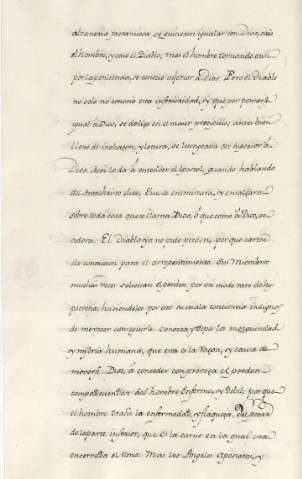 altaneria jactanciosa se quisieron igualar con Dios, cayó
el hombre, y cayo el Diablo; mas el hombre tornando en si
por la penitencia, se conoció inferior a Dios. Pero el Diablo
no solo no conoció esta inferioridad, y que por pensarse
igual a Dios, se deslizo en el maior precipicio; antes bien
lleno de inchazon, y locura, se lisongeava ser superior a
Dios. Assi lo da a entender el Apostol, quando hablando
del Antechristo dice, Que se encaminara, y ensalzara
sobre toda cosa que se llama Dios, ó que como a Dios, se
adora. El Diablo no pide perdon, porque carece
de compasion para el arrepentimiento. Sus Miembros
muchas veces solicitan el perdon por un modo raro de hy-
pocresia, haviendolos por su mala conciencia indignos
de merecer conseguirle. Conozca, y sepa la mezquindad
y miseria humana, que esta es la razon, y causa de
moverse Dios, á conceder con presteza el perdon
compadeciendose del hombre Enfermo, y debil; porque
el hombre trahe la enfermedad, y flaqueza,
de la parte inferior, que es la carne en la qual esta
encerrada el Alma. Mas los Angeles Apostatas, y